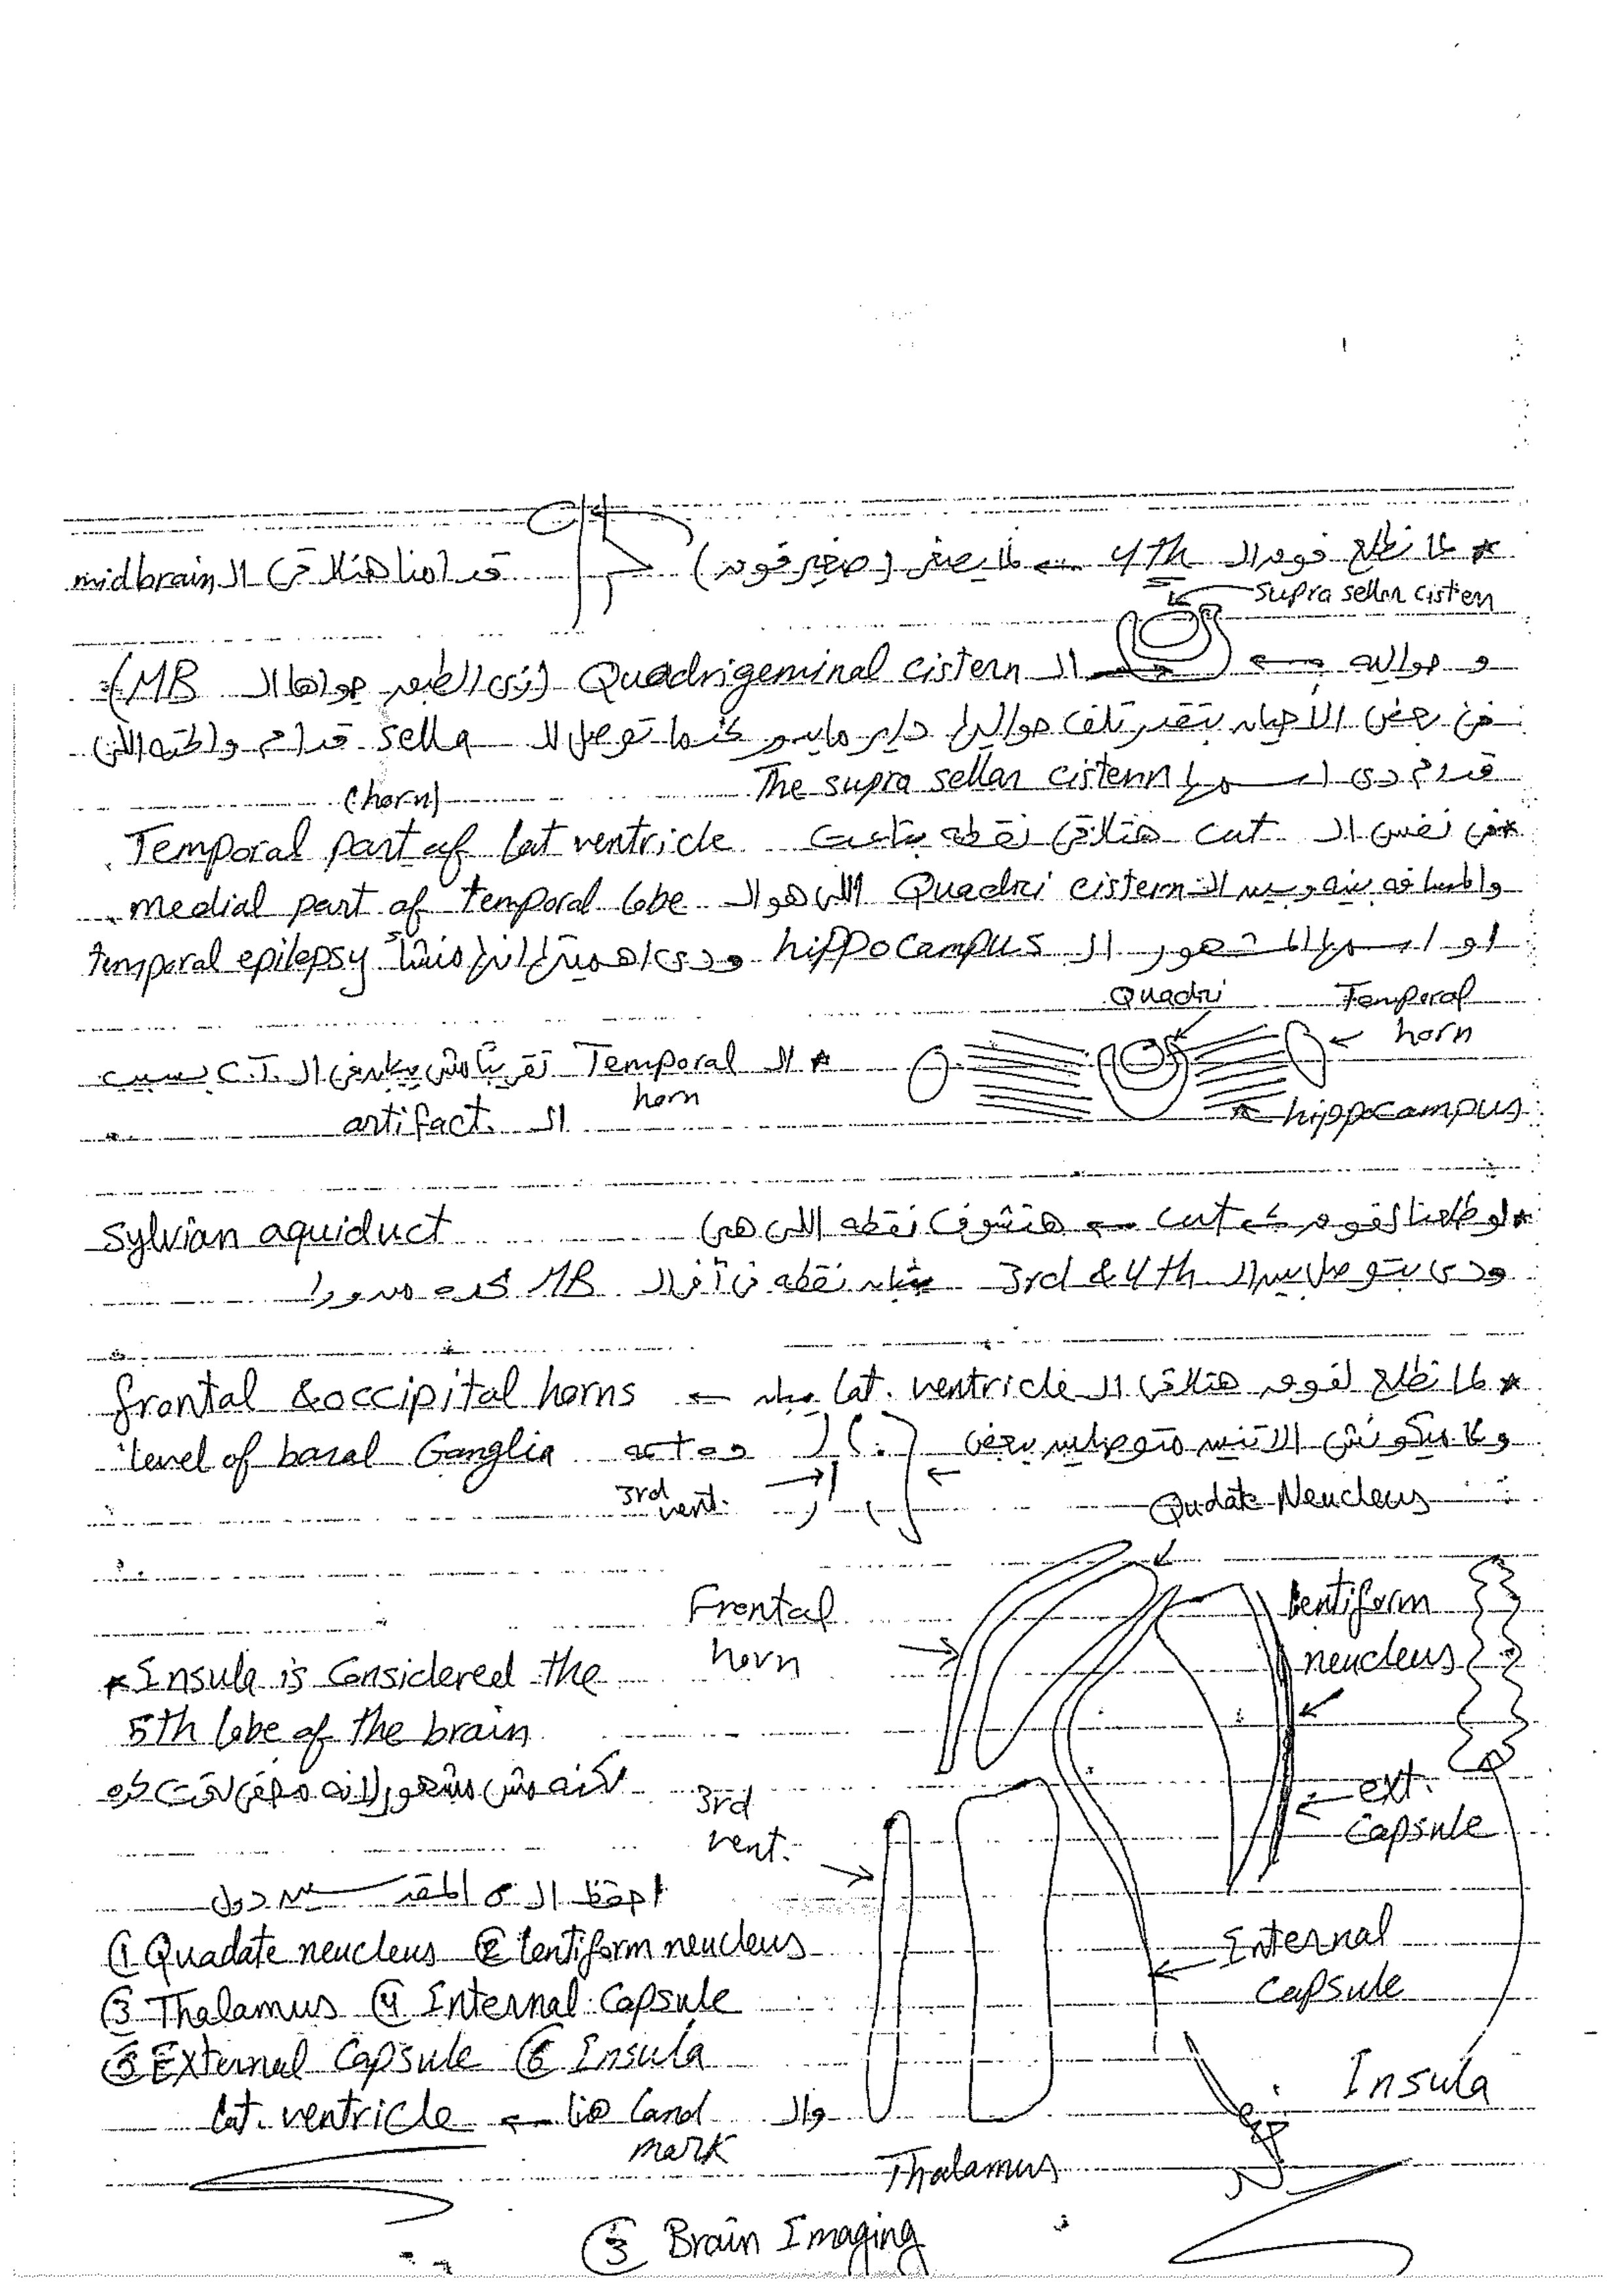 * لما نطلع فوق الـ 4th ← لما يصغر (صغير فوق) قدامنا هنلاقي الـ midbrain
Supra sellar cistern
و حواليه ← الـ Quadrigeminal cistern (زي الطبق جواها الـ MB)
في بعض الأحيان بتقدر تلف حواليها داير مايدور كدا توصل للـ sella قدام والحتة اللي
قدام دي اسمها The supra sellar cistern
(horn)
*في نفس الـ cut هنلاقي نقطه بتاعت Temporal part of lat ventricle
والمسافه بينه وبين الـ Quadri cistern اللي هو الـ medial part of temporal lobe
او اسمها المشهور الـ hippocampus ودي اهميتها انها منشأ temporal epilepsy
Quadri
Temporal horn
hippocampus
* الـ Temporal horn تقريباً مش بيظهر في الـ C.T. بسبب
الـ artifact.
*لو طلعنا لفوق كمان cut ← هنشوف نقطه اللي هي Sylvian aquiduct
ودي بتوصل بين الـ 3rd & 4th بتبان نقطه في آخر الـ MB كده مدورا
* لما نطلع لفوق هنلاقي الـ lat. ventricle بيبان ← frontal & occipital horns
ولما ميكونش الاتنين متوصلين ببعض دا cut level of basal Ganglia
3rd vent.
Qudate Neucleus
Frontal horn
lentiform neucleus
* Insula is Considered the
5th lobe of the brain
لكنه مش مشهور لانه مخفي تحت كده
3rd vent.
ext. Capsule
احفظ الـ ٥ المقدسين دول
① Quadate neucleus ② lentiform neucleus
③ Thalamus ④ Internal Capsule
⑤ External Capsule ⑥ Insula
والـ land mark هنا ← lat. ventricle
Internal Capsule
Insula
Thalamus
③ Brain Imaging